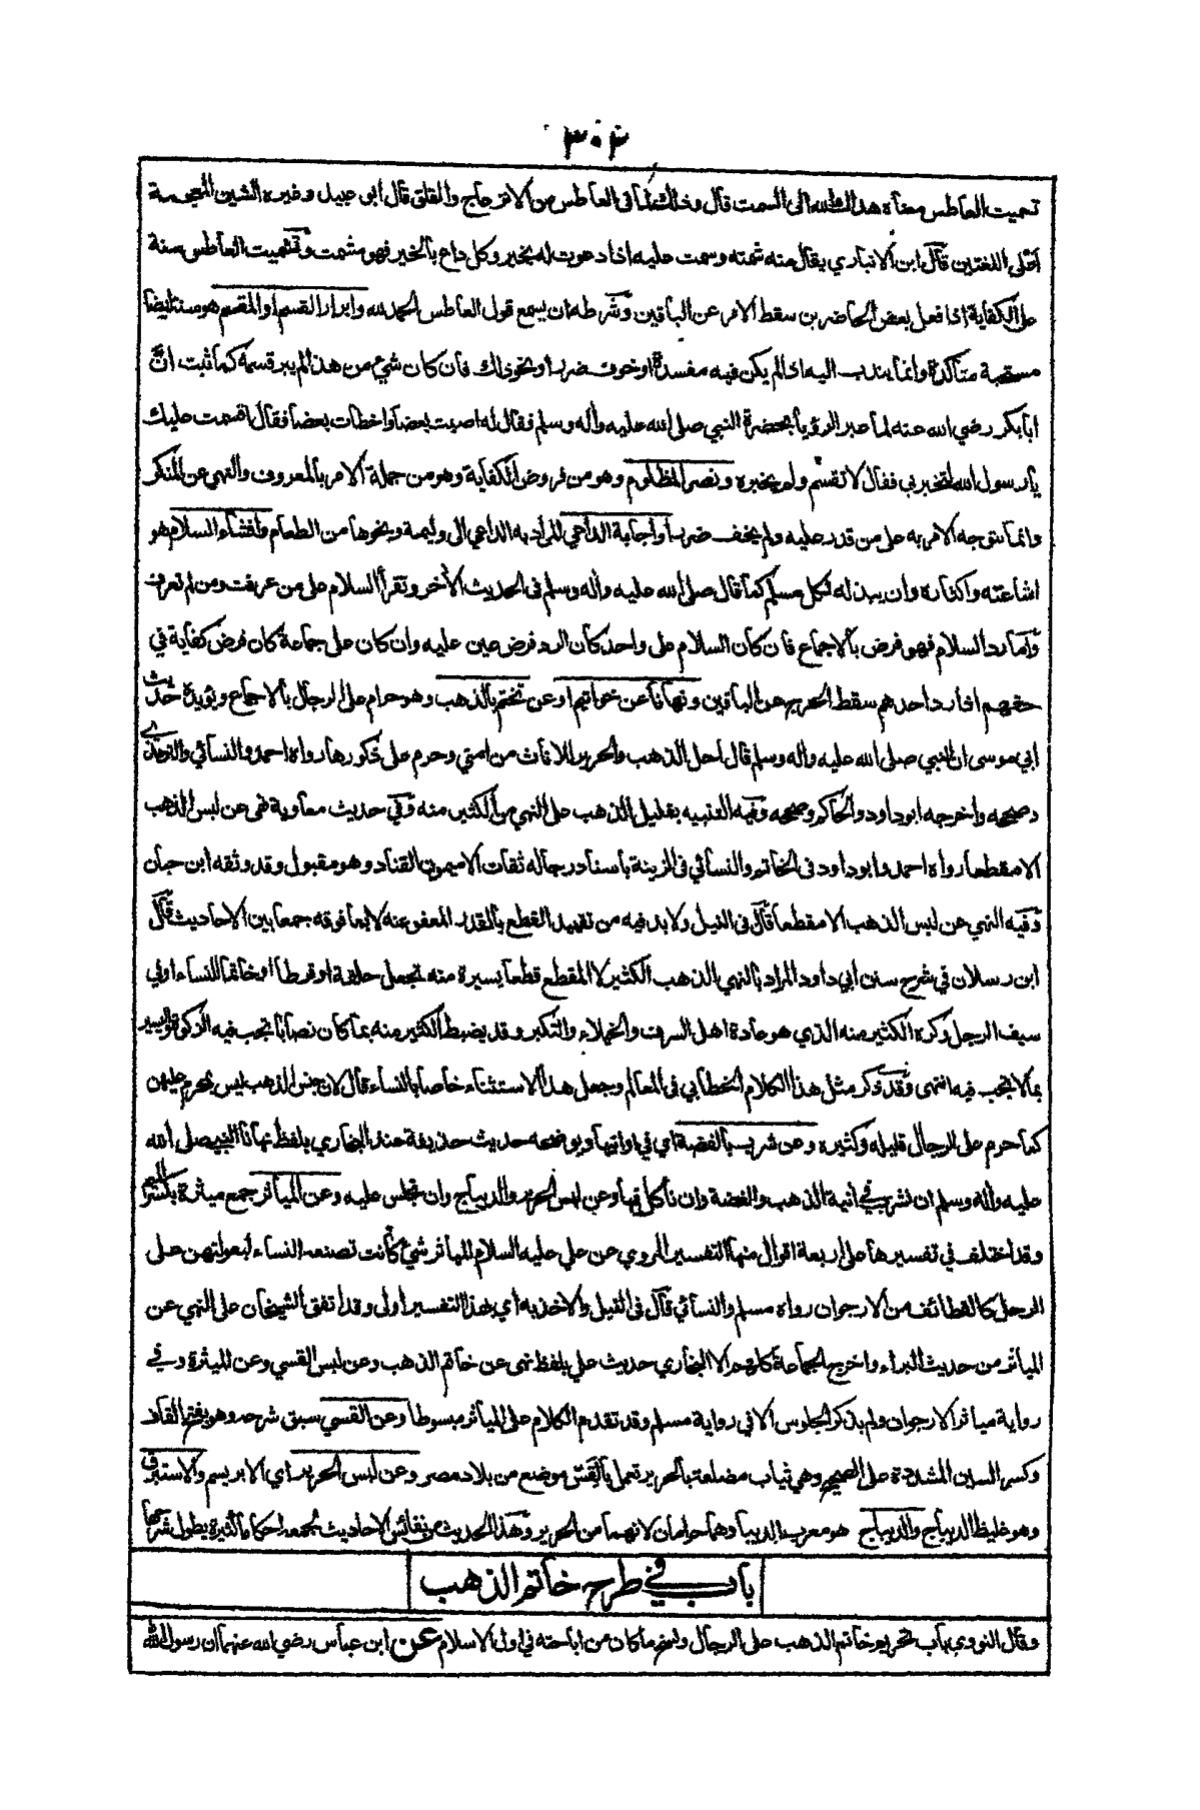 ٣٠٢
تسميت العاطس معناه هداك الله الى السمت قال وذلك لما فى العاطس من الانزعاج والقلق قال ابو عبيد وغيره الشين المعجمة
اعلى اللغتين قال ابن الانباري يقال منه شمته وسمت عليه اذا دعوت له بخير وكل داع بالخير فهو مشمت وتشميت العاطس سنة
على الكفاية اذا فعل بعض الحاضرين سقط الامر عن الباقين وشرطه ان يسمع قول العاطس الحمد لله وابرار القسم او المقسم هو سنة ايضا
مستحبة متأكدة وانما يندب اليه اذا لم يكن فيه مفسدة او خوف ضرر او نحو ذلك فان كان شئ من هذا لم يبر قسمه كما ثبت ان
ابا بكر رضي الله عنه لما عبر الرؤيا بحضرة النبي صلى الله عليه وأله وسلم فقال له اصبت بعضا واخطأت بعضا فقال اقسمت عليك
يا رسول الله لتخبرني فقال لا تقسم ولم يخبره ونصر المظلوم وهو من فروض الكفاية وهو من جملة الامر بالمعروف والنهي عن المنكر
وانما يتوجه الامر به على من قدر عليه ولم يخف ضررا واجابة الداعي المراد به الداعي الى وليمة ونحوها من الطعام وافشاء السلام هو
اشاعته واكثاره وان يبذله لكل مسلم كما قال صلى الله عليه وأله وسلم فى الحديث الأخر وتقرأ السلام على من عرفت ومن لم تعرف
وأما رد السلام فهو فرض بالاجماع فان كان السلام على واحد كان الرد فرض عين عليه وان كان على جماعة كان فرض كفاية في
حقهم اذا رد احدهم سقط الحرج عن الباقين ونهانا عن خواتيم او عن تختم بالذهب وهو حرام على الرجال بالاجماع ويؤيده حديث
ابي موسى ان النبي صلى الله عليه واله وسلم قال احل الذهب والحرير للاناث من امتي وحرم على ذكورها رواه احمد والنسائي والترمذي
وصححه واخرجه ابو داود والحاكم وصححه وفيه التنبيه بقليل الذهب على النهي من الكثير منه وفي حديث معاوية نهى عن لبس الذهب
الا مقطعا رواه احمد وابو داود فى الخاتم والنسائي فى الزينة باسناد رجاله ثقات الا ميمون القناد وهو مقبول وقد وثقه ابن حبان
وفيه النهي عن لبس الذهب الا مقطعا قال فى النيل ولا بد فيه من تقييد القطع بالقدر المعفو عنه لا بما فوقه جمعا بين الاحاديث قال
ابن رسلان في شرح سنن ابي داود المراد بالنهي الذهب الكثير لا المقطع قطعا يسيرة منه تجعل حلقة او قرطا او خاتما للنساء او في
سيف الرجل وكره الكثير منه الذي هو عادة اهل السرف والخيلاء والتكبر وقد يضبط الكثير منه بما كان نصابا تجب فيه الزكوة واليسير
بما لا تجب فيه انتهى وقد ذكر مثل هذا الكلام الخطابي فى المعالم وجعل هذا الاستثناء خاصا بالنساء قال لان جنس الذهب ليس بمحرم عليهن
كما حرم على الرجال قليله وكثيره وعن شرب بالفضة اي في اوانيها ويوضحه حديث حذيفة عند البخاري بلفظ نهانا النبي صلى الله
عليه وأله وسلم ان نشرب في أنية الذهب والفضة وان نأكل فيها وعن لبس الحرير والديباج وان نجلس عليه وعن المياثر جمع ميثرة بكسر الميم
وقد اختلف في تفسيرها على اربعة اقوال منها التفسير المروي عن علي عليه السلام المياثر شئ كانت تصنعه النساء لبعولتهن على
الرحل كالقطائف من الارجوان رواه مسلم والنسائي قال فى النيل والاخذ به اي بهذا التفسير اولى وقد اتفق الشيخان على النهي عن
المياثر من حديث البراء واخرج الجماعة كلهم الا البخاري حديث علي بلفظ نهى عن خاتم الذهب وعن لبس القسي وعن الميثرة وفي
رواية مياثر الارجوان ولم يذكر الجلوس الا في رواية مسلم وقد تقدم الكلام على المياثر مبسوطا وعن القسي سبق شرحه وهو بفتح القاف
وكسر السين المشددة على الصحيح وهي ثياب مضلعة بالحرير تعمل بالقس موضع من بلاد مصر وعن لبس الحرير اي الابريسم والاستبرق
وهو غليظ الديباج والديباج هو معرب الديبا وهما حرامان لانهما من الحرير وهذا الحديث من نفائس الاحاديث لجمعه احكاما كثيرة يطول شرحها
باب في طرح خاتم الذهب
وقال النووي باب تحريم خاتم الذهب على الرجال ونسخ ما كان من اباحته في اول الاسلام عن ابن عباس رضي الله عنهما ان رسول الله